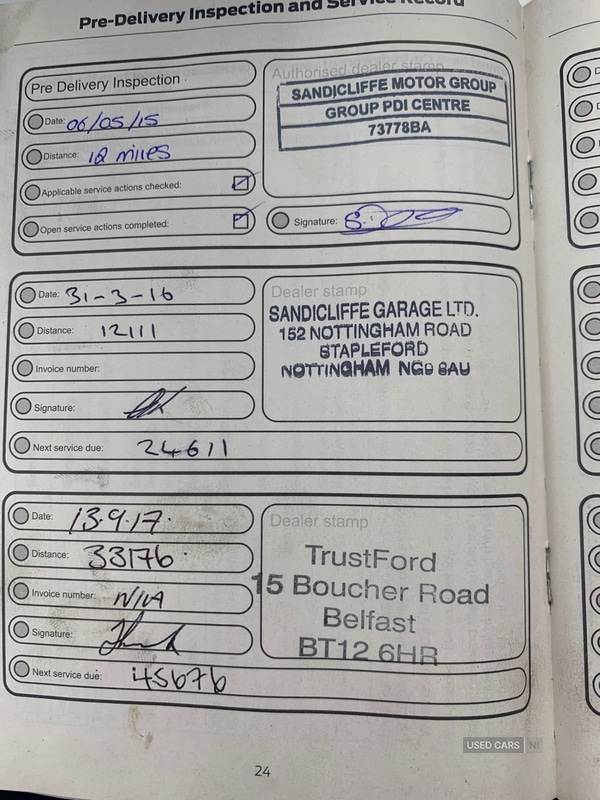 Pre-Delivery Inspection and Service Record
Pre Delivery Inspection
Date: 06/05/15
Distance: 12 miles
Applicable service actions checked:
Open service actions completed:
Authorised dealer stamp
SANDICLIFFE MOTOR GROUP
GROUP PDI CENTRE
73778BA
Signature:
Date: 31-3-16
Distance: 12111
Invoice number:
Signature:
Next service due: 24611
Dealer stamp
SANDICLIFFE GARAGE LTD.
152 NOTTINGHAM ROAD
STAPLEFORD
NOTTINGHAM NG9 8AU
Date: 13.9.17.
Distance: 33176
Invoice number: N/A
Signature:
Next service due: 45676
Dealer stamp
TrustFord
15 Boucher Road
Belfast
BT12 6HR
24
USED CARS NI